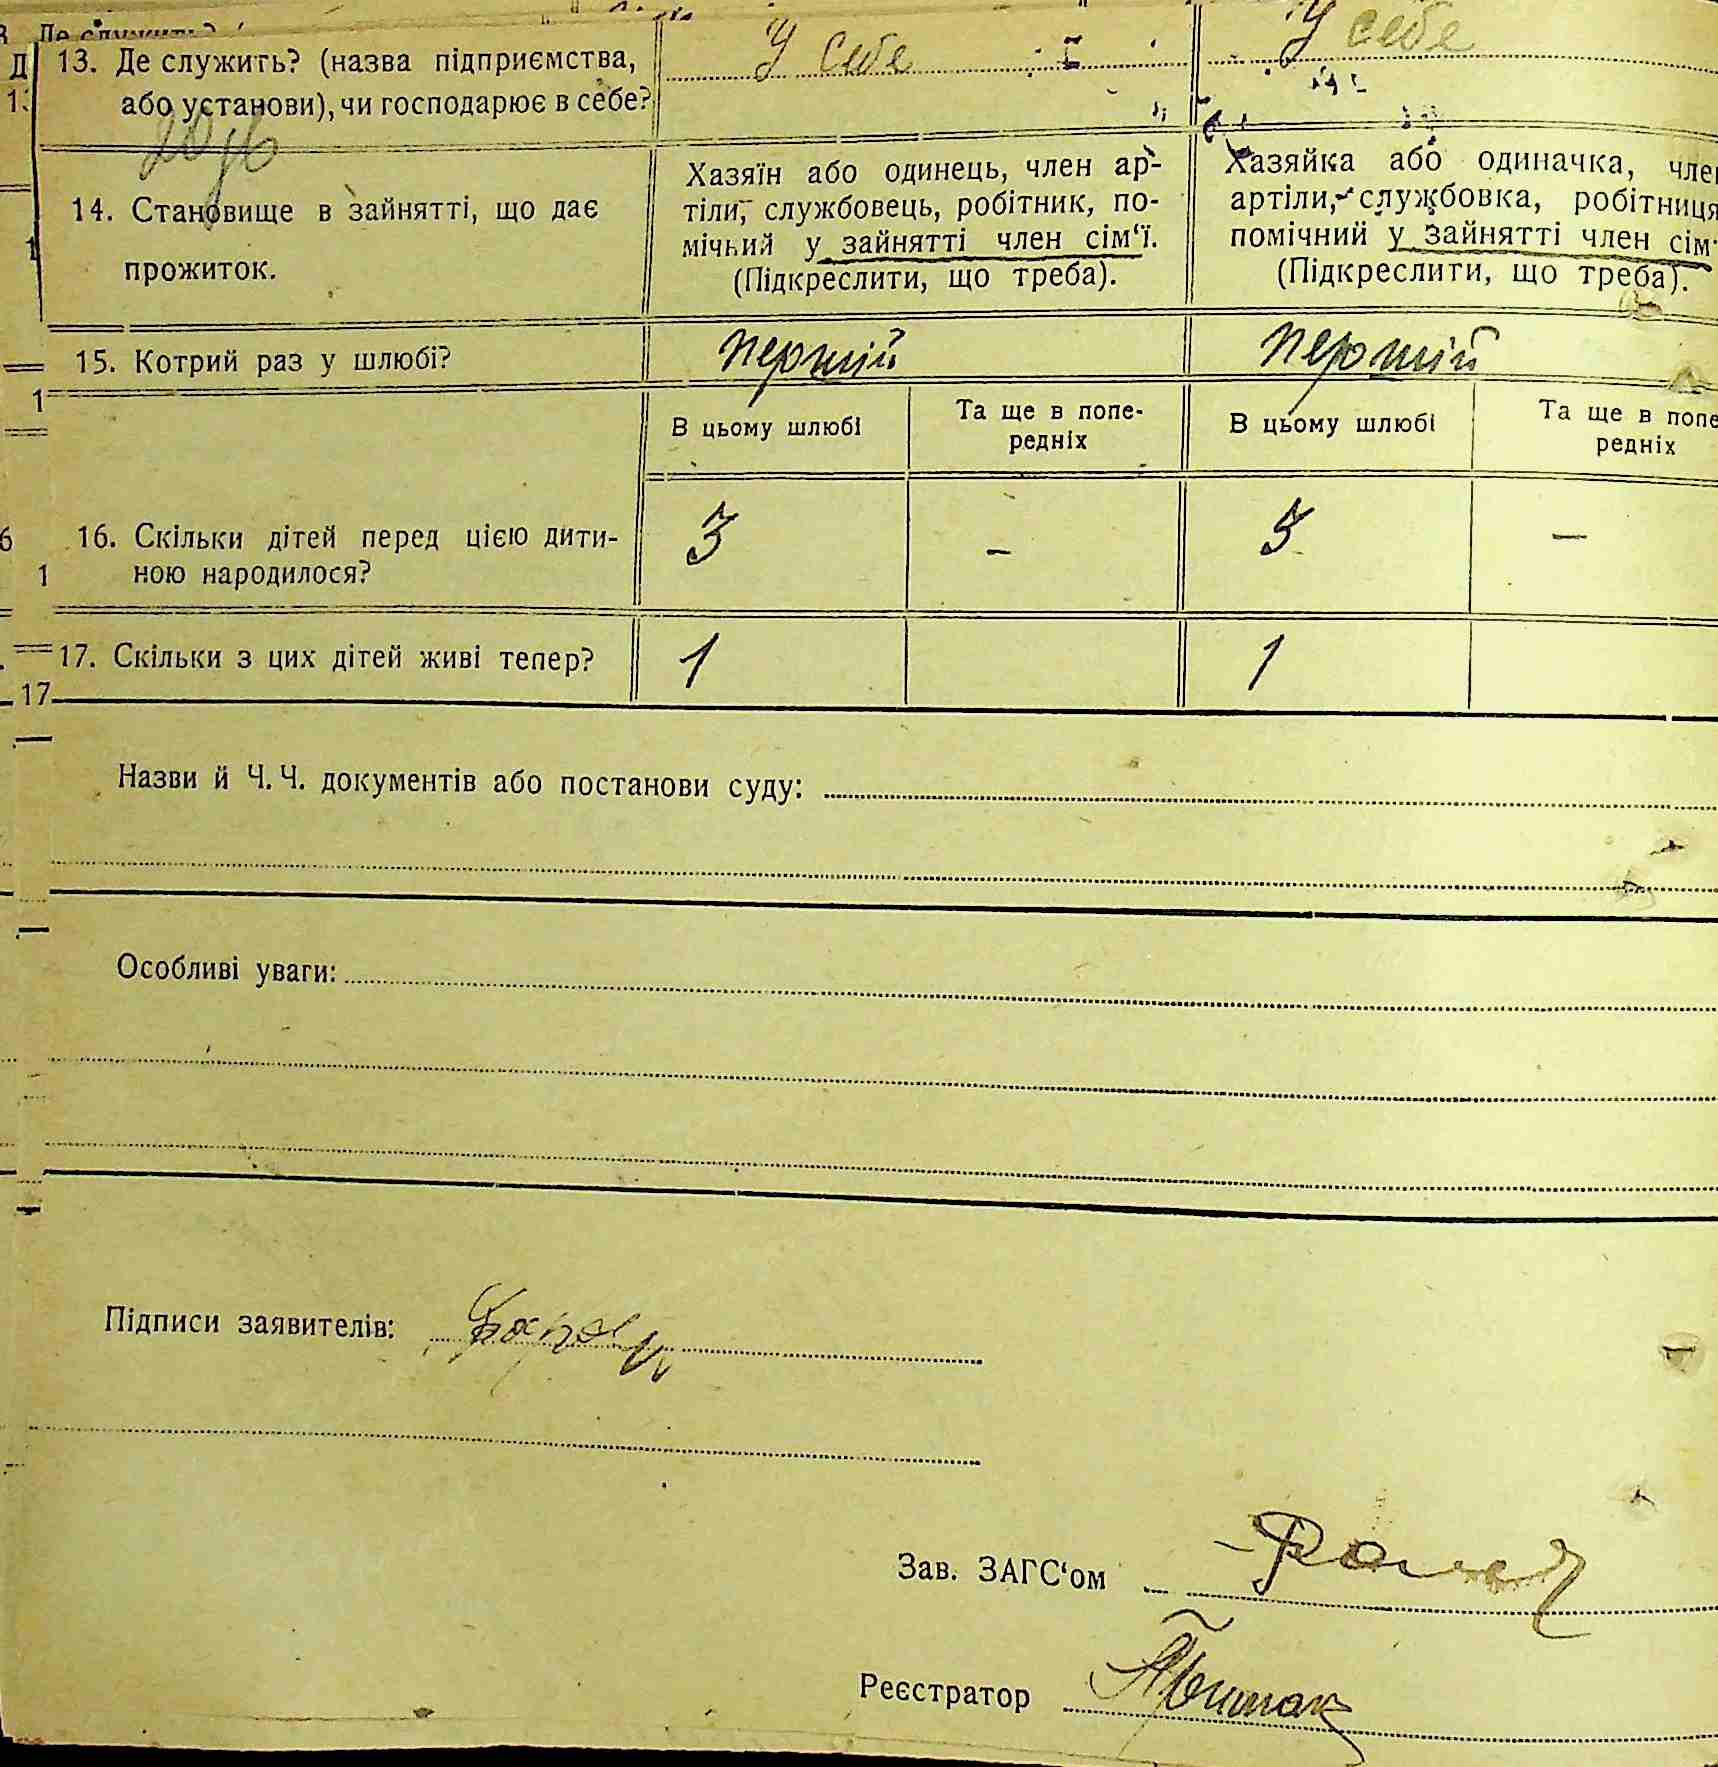 13. Де служить? (назва підприємства, У себе У себе
або установи), чи господарює в себе?
Хазяїн або одинець, член ар- Хазяйка або одиначка, член
14. Становище в зайнятті, що дає тіли, службовець, робітник, по- артіли, службовка, робітниця
мічний у зайнятті член сім‘ї. помічний у зайнятті член сім‘
прожиток. (Підкреслити, що треба). (Підкреслити, що треба).
15. Котрий раз у шлюбі? перший перший
В цьому шлюбі Та ще в попе- В цьому шлюбі Та ще в попе
редніх редніх
16. Скільки дітей перед цією дити- 3 – –
ною народилося?
17. Скільки з цих дітей живі тепер? 1 1
17
Назви й Ч. Ч. документів або постанови суду:
Особливі уваги:
Підписи заявителів:
Зав. ЗАГС‘ом
Реєстратор